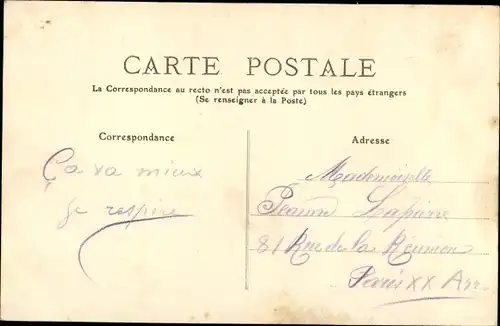 CARTE POSTALE
La Correspondance au recto n'est pas acceptée par tous les pays étrangers
(Se renseigner à la Poste)
Correspondance
Adresse
Ça va mieux
Je respire
Mademoiselle
Jeanne Lapierre
81 Rue de la Réunion
Paris XX Arr